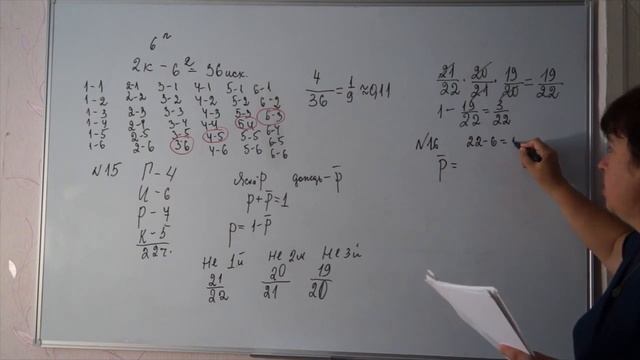 6ⁿ
2к – 6² = 36 исх.
1-1 2-1 3-1 4-1 5-1 6-1
1-2 2-2 3-2 4-2 5-2 6-2
1-3 2-3 3-3 4-3 5-3 6-3
1-4 2-4 3-4 4-4 5-4 6-4
1-5 2-5 3-5 4-5 5-5 6-5
1-6 2-6 3-6 4-6 5-6 6-6
4/36 = 1/9 ≈ 0,11
21/22 · 20/21 · 19/20 = 19/22
1 - 19/22 = 3/22
N15
П - 4
И - 6
Р - 7
К - 5
22 ч.
Ясно p дождь – p̄
p + p̄ = 1
p = 1 - p̄
Не 1й Не 2й Не 3й
21/22 20/21 19/20
N16 22-6=
p̄ =